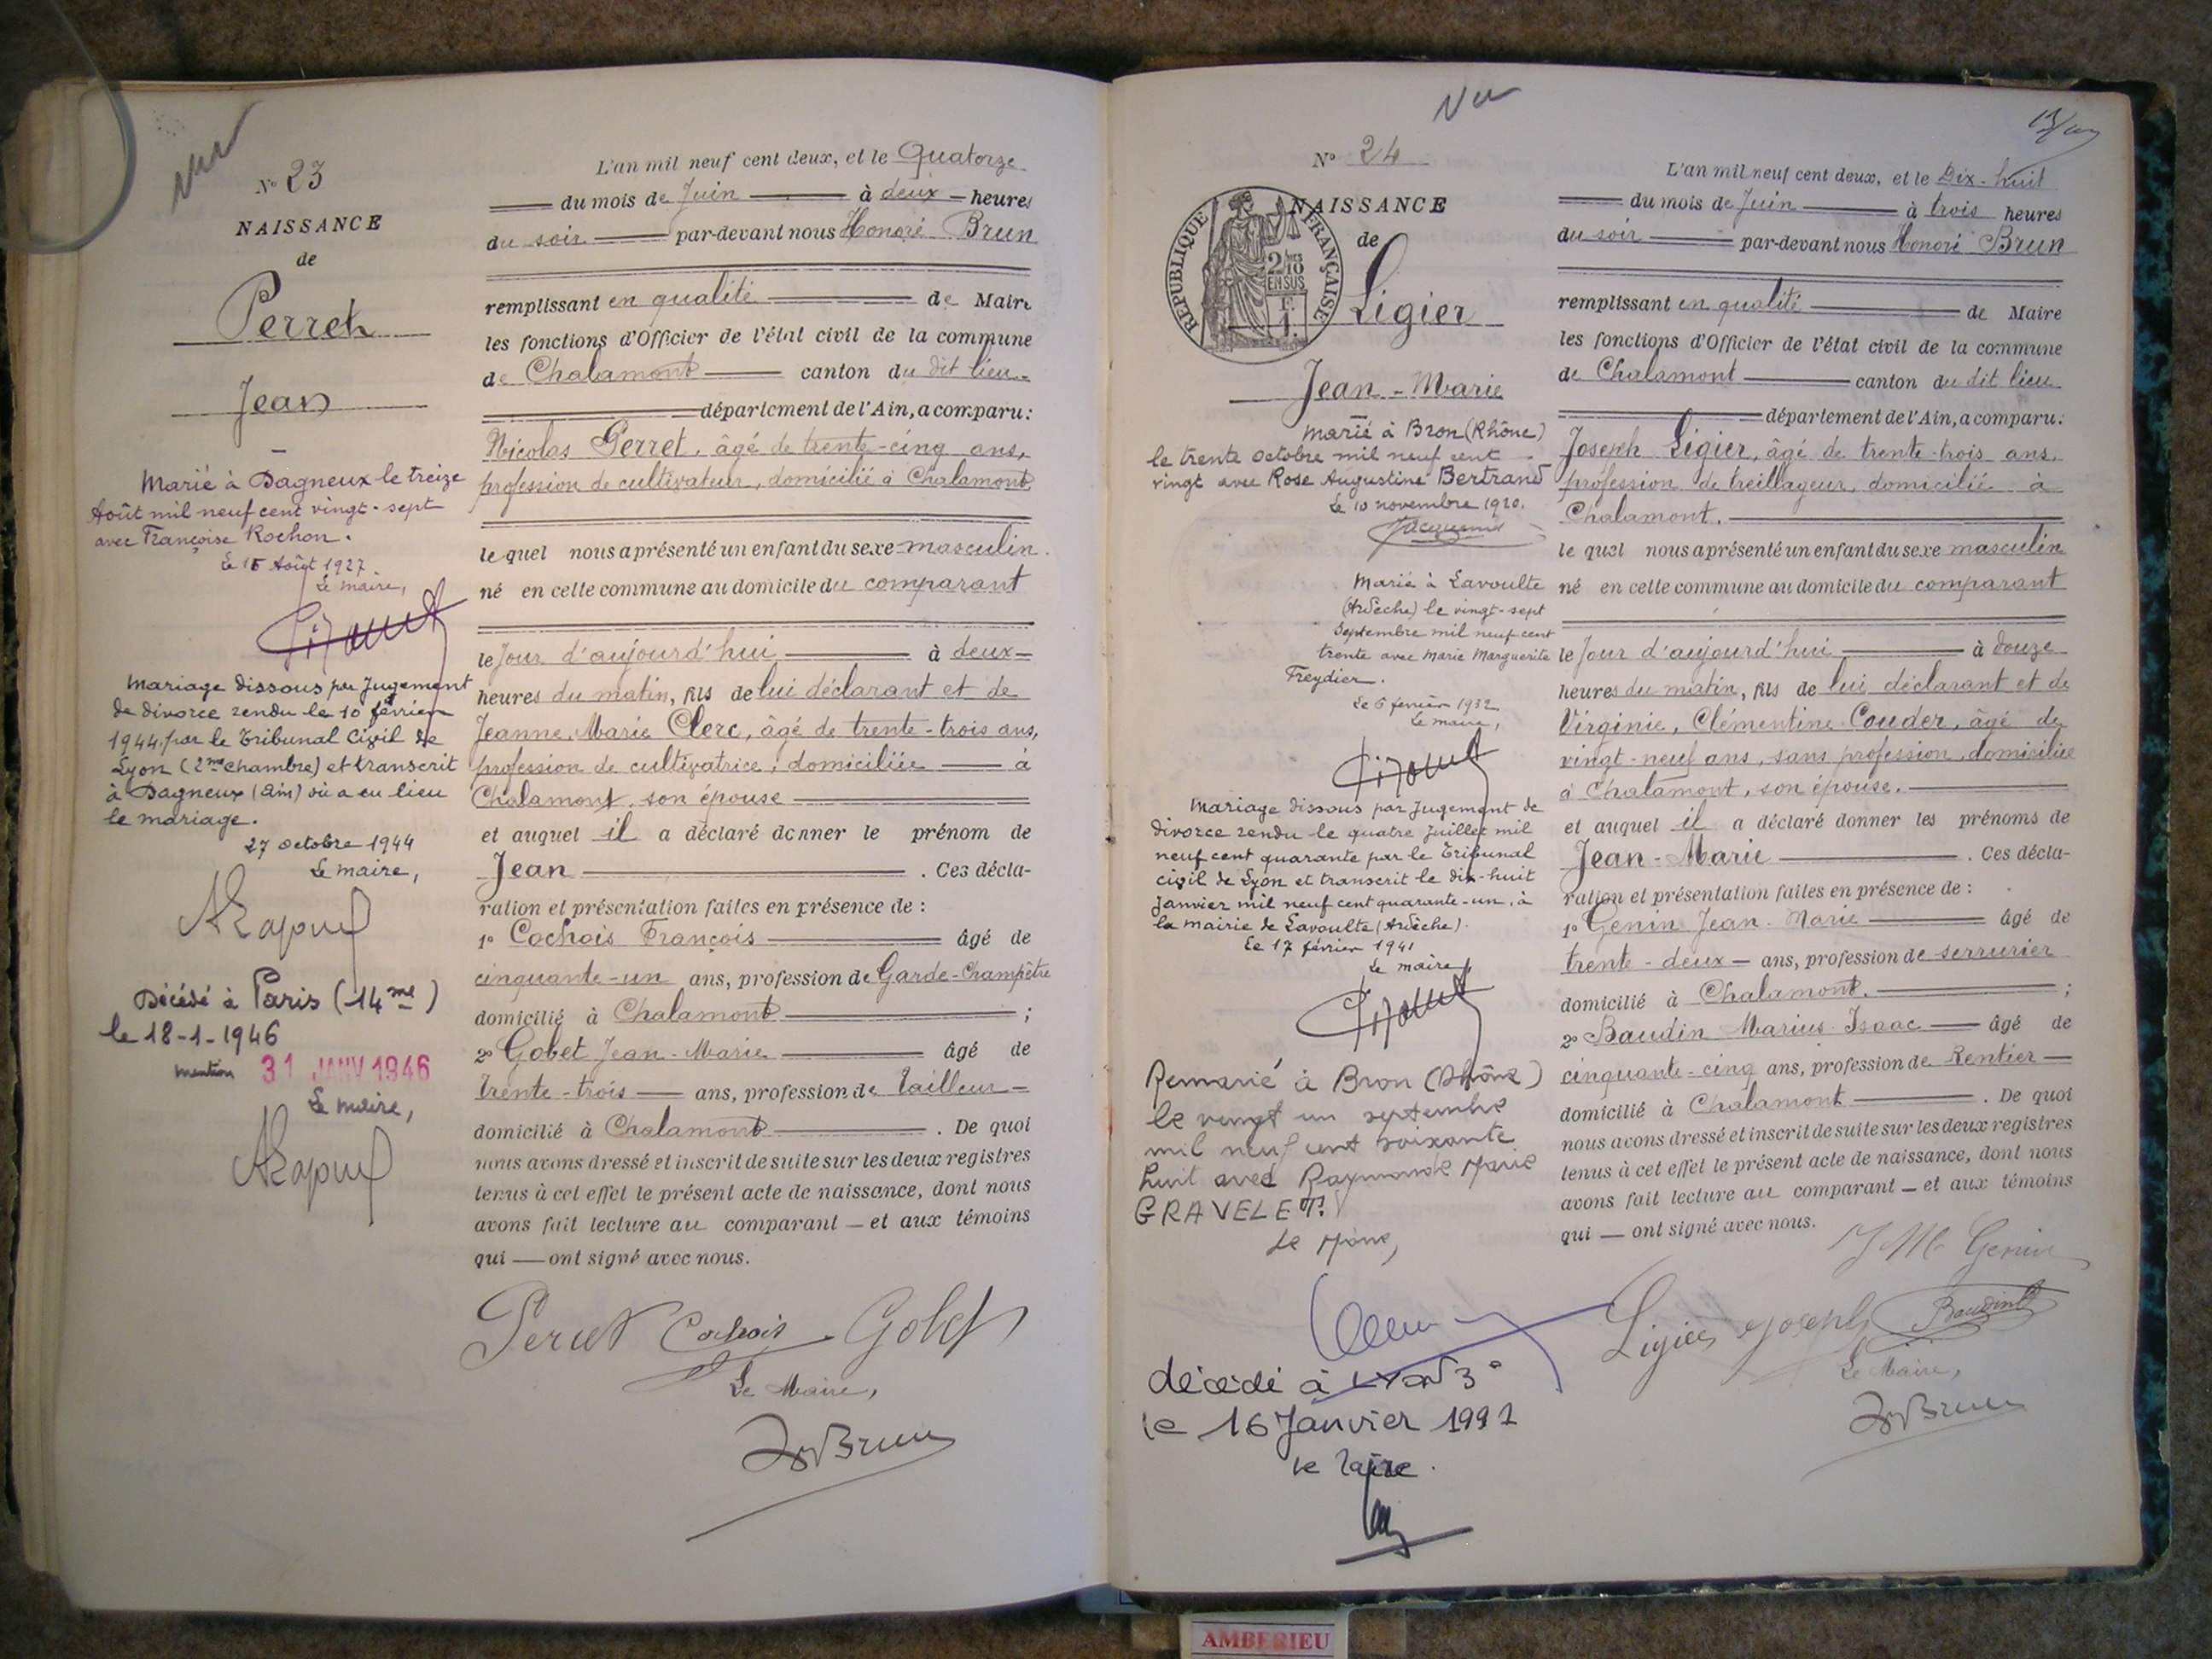 Vu
N° 23
NAISSANCE
de
Perret
Jean
Marié à Dagneux le treize
Août mil neuf cent vingt-sept
avec Françoise Rochon.
Le 15 Août 1927
Le maire,
Mariage dissous par Jugement
de divorce rendu le 10 février
1944, par le Tribunal Civil de
Lyon (2me chambre) et transcrit
à Dagneux (Ain) où a eu lieu
le mariage.
27 octobre 1944
Le maire,
Décédé à Paris (14me)
le 18-1-1946
mention 31 JANV 1946
Le maire,
L'an mil neuf cent deux, et le Quatorze
du mois de Juin à deux heures
du soir par-devant nous Honoré Brun
remplissant en qualité de Maire
les fonctions d'Officier de l'état civil de la commune
de Chalamont canton du dit lieu
département de l'Ain, a comparu:
Nicolas Perret, âgé de trente-cinq ans,
profession de cultivateur, domicilié à Chalamont
le quel nous a présenté un enfant du sexe masculin.
né en cette commune au domicile du comparant
le Jour d'aujourd'hui à deux
heures du matin, fils de lui déclarant et de
Jeanne, Marie Clerc, âgé de trente-trois ans,
profession de cultivatrice, domiciliée à
Chalamont, son épouse
et auquel il a déclaré donner le prénom de
Jean . Ces décla-
ration et présentation faites en présence de :
1° Cochois François âgé de
cinquante-un ans, profession de Garde-Champêtre
domicilié à Chalamont ;
2° Gobet Jean-Marie âgé de
trente-trois ans, profession de tailleur
domicilié à Chalamont . De quoi
nous avons dressé et inscrit de suite sur les deux registres
tenus à cet effet le présent acte de naissance, dont nous
avons fait lecture au comparant et aux témoins
qui ont signé avec nous.
Perret Cochois Gobet
Le Maire,
Brun
Vu
N° 24
NAISSANCE
de
RÉPUBLIQUE FRANÇAISE
2/10 EN SUS
Ligier
Jean-Marie
Marié à Bron (Rhône)
le trente octobre mil neuf cent
vingt avec Rose Augustine Bertrand
Le 10 novembre 1920.
Marié à Lavoulte
(Ardèche) le vingt-sept
Septembre mil neuf cent
trente avec Marie Marguerite
Freydier.
Le 6 février 1932
Le maire,
Mariage dissous par Jugement de
divorce rendu le quatre Juillet mil
neuf cent quarante par le Tribunal
civil de Lyon et transcrit le dix-huit
Janvier mil neuf cent quarante-un, à
la mairie de Lavoulte (Ardèche).
Le 17 février 1941
Le maire,
Remarié à Bron (Rhône)
le vingt un septembre
mil neuf cent soixante
huit avec Raymonde Marie
GRAVELET.
Le Maire,
décédé à LYON 3°
le 16 Janvier 1992
Le Maire.
L'an mil neuf cent deux, et le Dix-huit
du mois de Juin à trois heures
du soir par-devant nous Honoré Brun
remplissant en qualité de Maire
les fonctions d'Officier de l'état civil de la commune
de Chalamont canton du dit lieu
département de l'Ain, a comparu:
Joseph Ligier, âgé de trente-trois ans,
profession de treillageur, domicilié à
Chalamont.
le quel nous a présenté un enfant du sexe masculin
né en cette commune au domicile du comparant
le Jour d'aujourd'hui à douze
heures du matin, fils de lui déclarant et de
Virginie, Clémentine Couder, âgé de
vingt-neuf ans, sans profession, domiciliée
à Chalamont, son épouse.
et auquel il a déclaré donner les prénoms de
Jean-Marie . Ces décla-
ration et présentation faites en présence de :
1° Genin Jean-Marie âgé de
trente-deux ans, profession de serrurier
domicilié à Chalamont. ;
2° Baudin Marius Isaac âgé de
cinquante-cinq ans, profession de Rentier
domicilié à Chalamont . De quoi
nous avons dressé et inscrit de suite sur les deux registres
tenus à cet effet le présent acte de naissance, dont nous
avons fait lecture au comparant et aux témoins
qui ont signé avec nous.
J M Genin
Ligier Joseph Baudin
Le Maire,
Brun
AMBERIEU